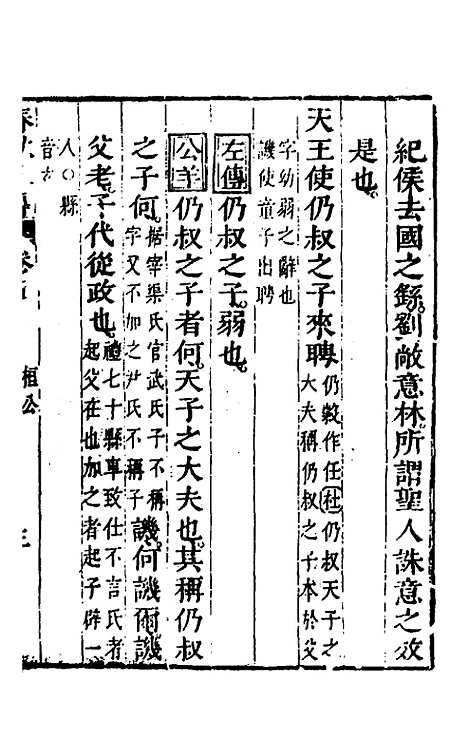 紀侯去國之繇劉敞意林所謂聖人誅意之效
是也
天王使仍叔之子來聘仍穀作任杜仍叔天子之
大夫稱仍叔之子本於父
字幼弱之辭也
譏使童子出聘
左傳仍叔之子弱也
公羊仍叔之子者何天子之大夫也其稱仍叔
之子何据宰渠氏官武氏子不稱
字又不加之尹氏不稱子譏何譏爾譏
父老子代從政也禮七十縣車致仕不言氏者
起父在也加之者起子辟一
人○縣
音
桓公
三